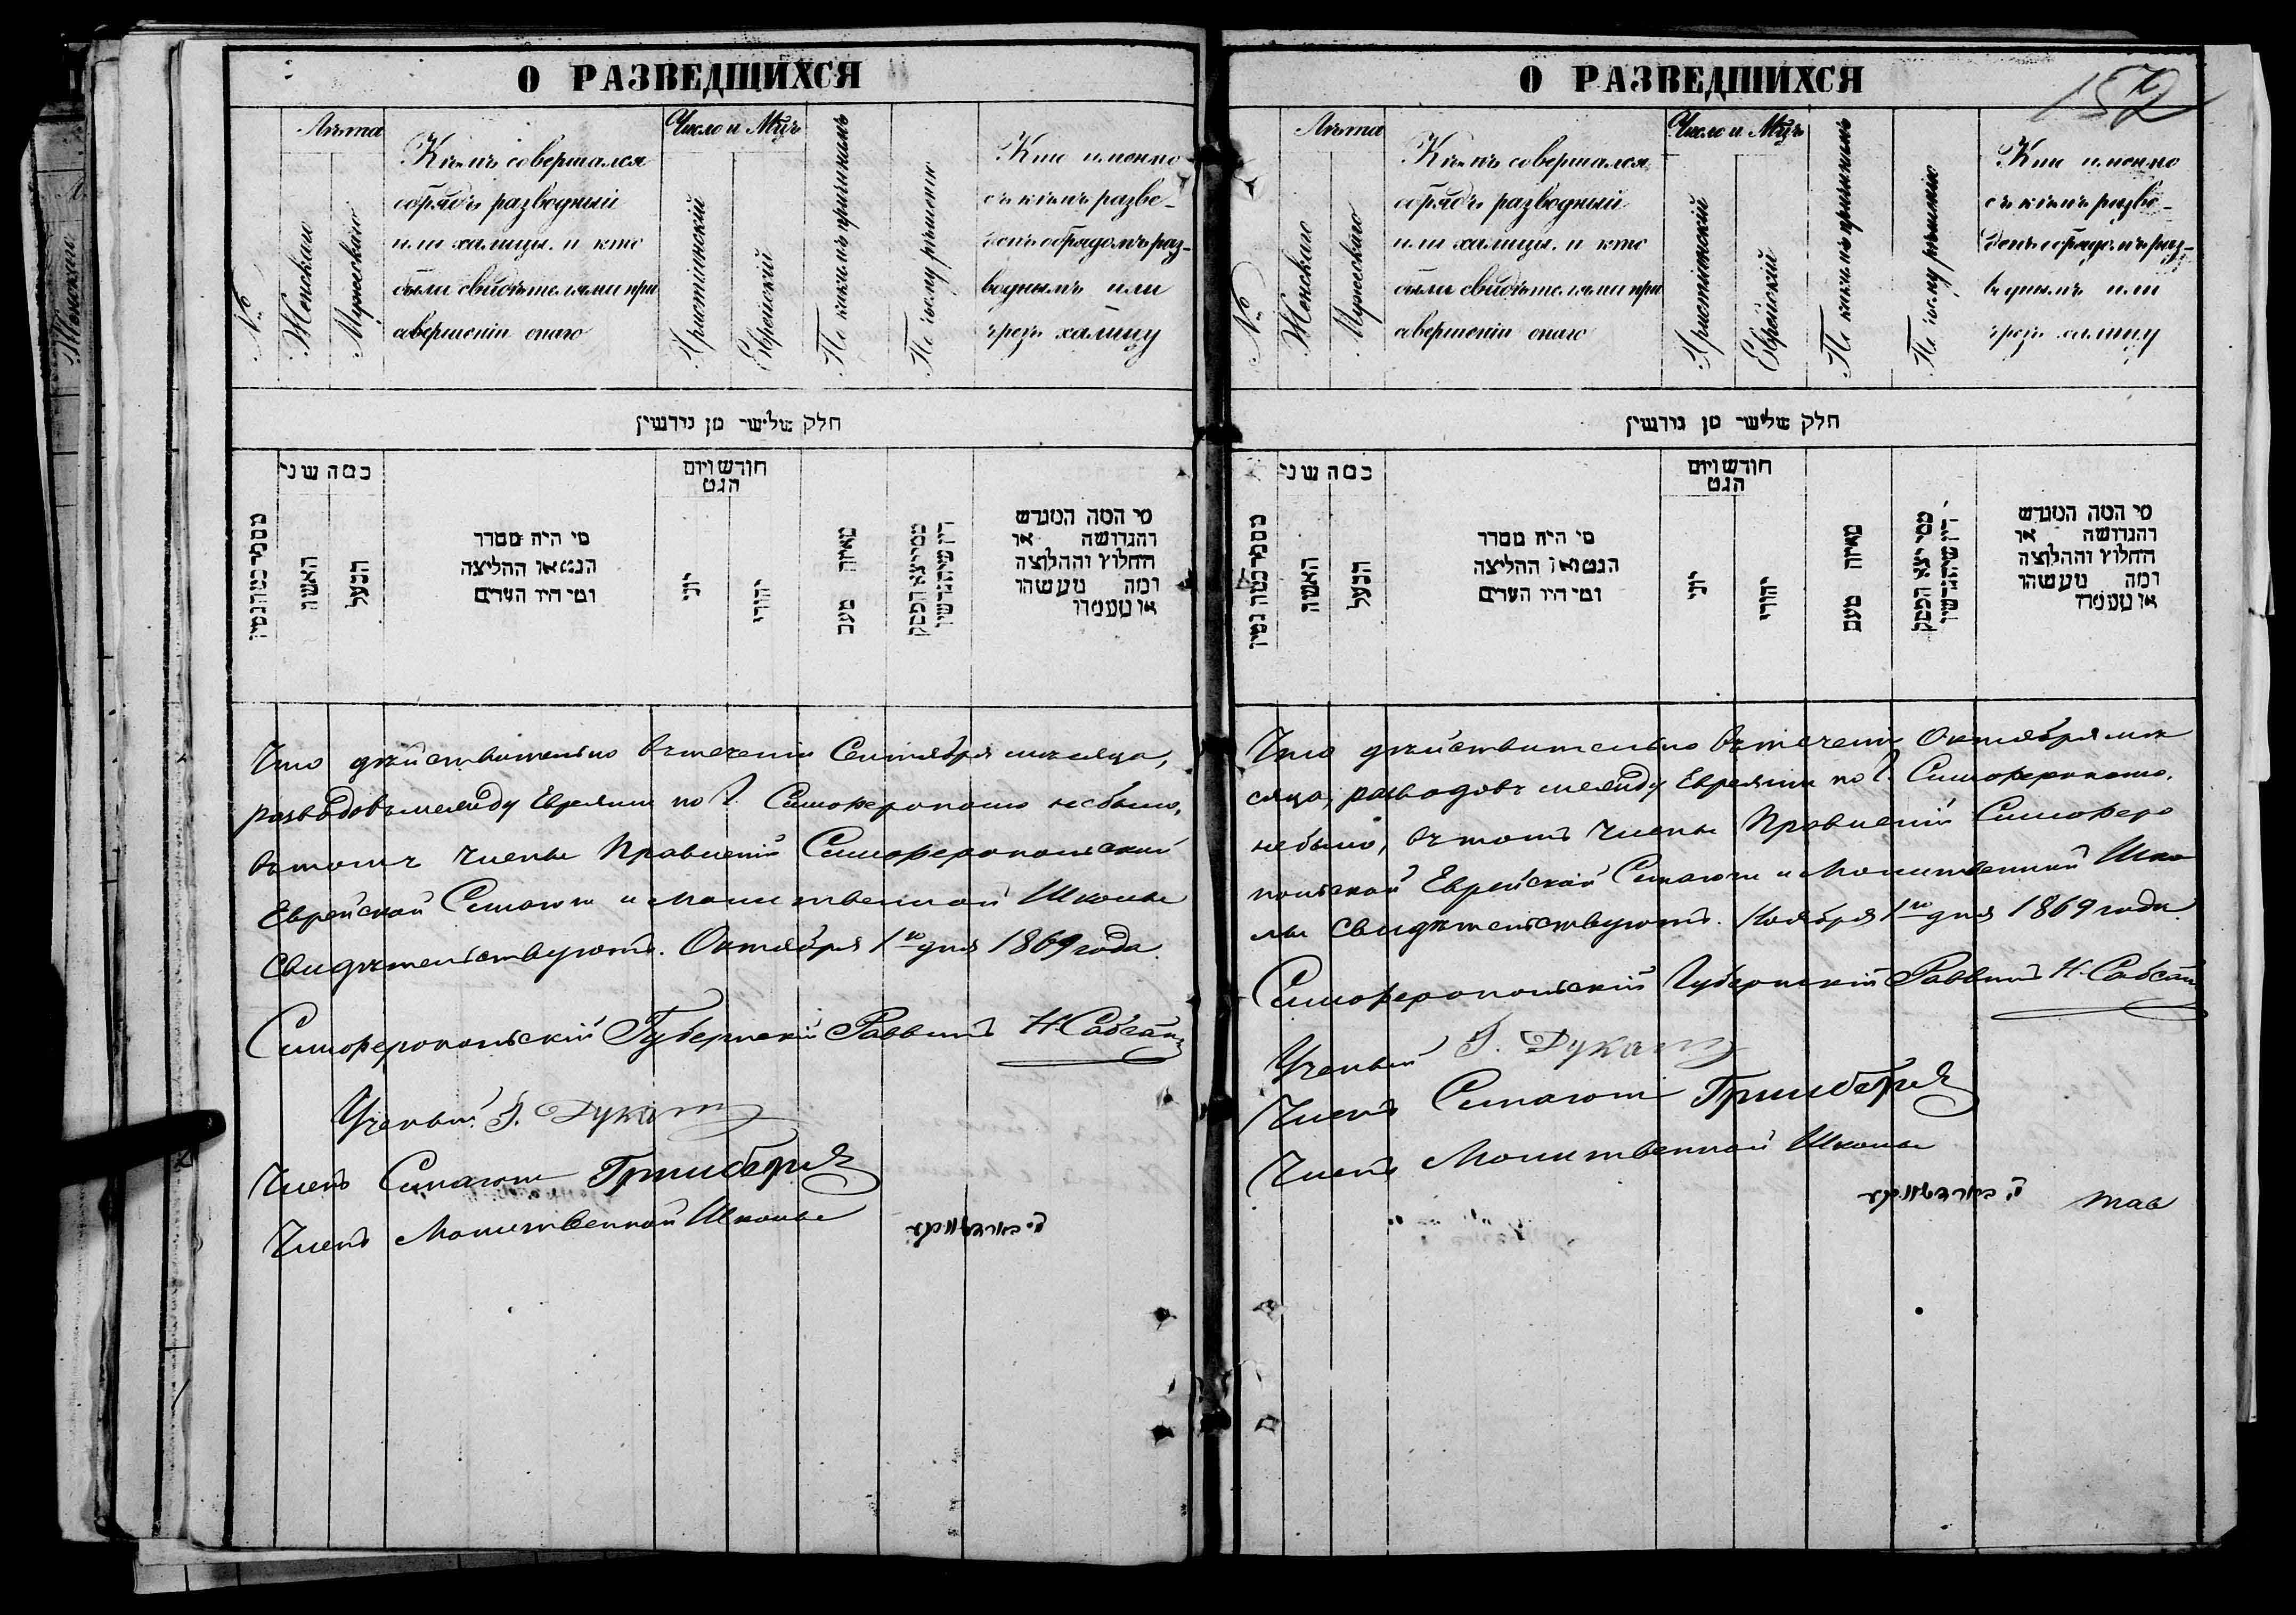 О РАЗВЕДШИХСЯ
№
Лѣта
Женскаго
Мужескаго
Кѣмъ совершался
обрядъ разводный
или халицы. и кто
были свидѣтелями при
совершеніи онаго
Число и Мцъ
Христіянскій
Еврейскій
По какимъ причинамъ
По чьему рѣшенію
Кто именно
съ кѣмъ разве-
денъ обрядомъ раз-
воднымъ или
чрезъ халицу
חלק שלישי מן גירושין
כמה שני
האשה
הבעל
מי היה מסדר
הגט או החליצה
ומי היו העדים
חודש ויום
הגט
יוני
יהודי
מאיזה טעם
ממי יצא הפסק
דין שיתגרשו
מי המה המגרש
והגרושה או
החלוץ והחלוצה
ומה מעשהו
או מעמדו
Что дѣйствительно въ теченіи Сентября мѣсяца,
разводовъ между Евреями по г. Симферополю небыло,
въ томъ Члены Правленій Симферопольской
Еврейской Синагоги и Молитвенной Школы
свидѣтельствуютъ. Октября 1го дня 1869 года.
Симферопольскій Губернскій Раввинъ Н. Сабсай
Ученый
Членъ Синагоги Гринбергъ
Членъ Молитвенной Школы
О РАЗВЕДШИХСЯ
152
№
Лѣта
Женскаго
Мужескаго
Кѣмъ совершался
обрядъ разводный
или халицы. и кто
были свидѣтелями при
совершеніи онаго
Число и Мцъ
Христіянскій
Еврейскій
По какимъ причинамъ
По чьему рѣшенію
Кто именно
съ кѣмъ разве-
денъ обрядомъ раз-
воднымъ или
чрезъ халицу
חלק שלישי מן גירושין
כמה שני
האשה
הבעל
מי היה מסדר
הגט או החליצה
ומי היו העדים
חודש ויום
הגט
יוני
יהודי
מאיזה טעם
ממי יצא הפסק
דין שיתגרשו
מי המה המגרש
והגרושה או
החלוץ והחלוצה
ומה מעשהו
או מעמדו
Что дѣйствительно въ теченіи Октября мѣ
сяца, разводовъ между Евреями по г. Симферополю,
небыло, въ томъ Члены Правленій Симферо
польской Еврейской Синагоги и Молитвенной Шко
лы свидѣтельствуютъ. Ноября 1го дня 1869 года.
Симферопольскій Губернскій Раввинъ Н. Сабсай
Ученый
Членъ Синагоги Гринбергъ
Членъ Молитвенной Школы